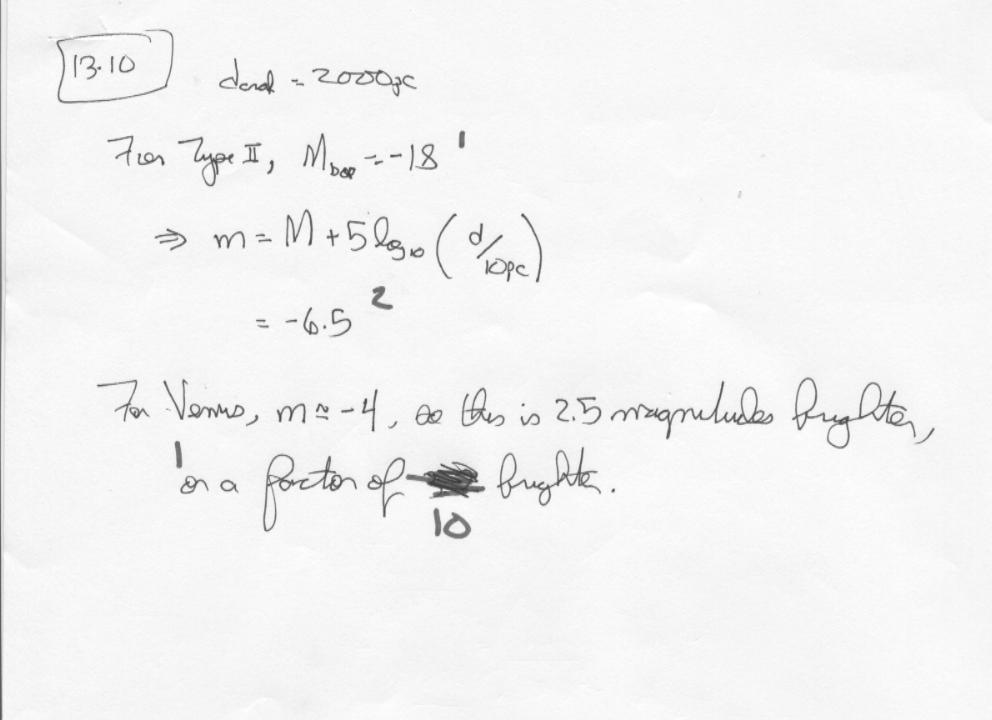 13.10
d_crab = 2000pc
For Type II, M_bol = -18 1
⇒ m = M + 5 log₁₀ (d/10pc)
= -6.5 2
For Venus, m ≃ -4, so this is 2.5 magnitudes brighter,
1 or a factor of brighter.
10